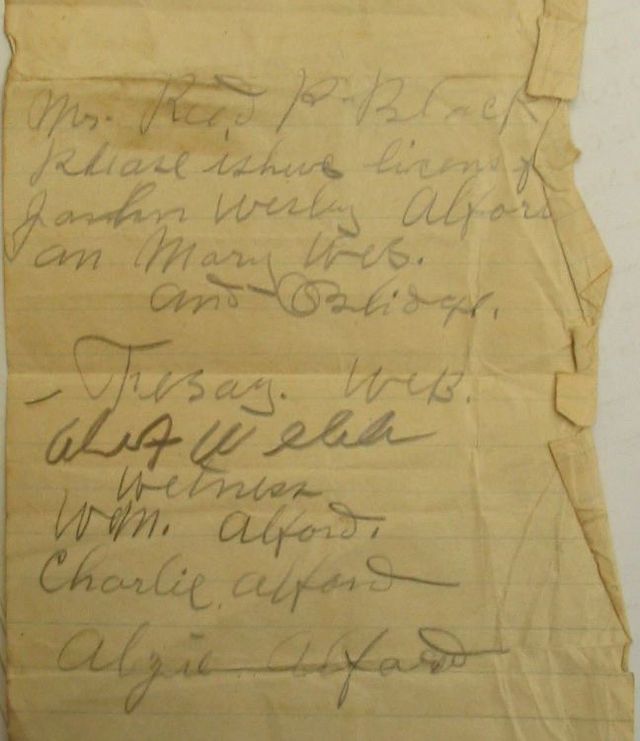 Mr. Reed P. Black
Please ishue licens f
Wesley Alford
an Mary Web.
and Oblidge.
Web.
Webb
Witness
WM. Alford.
Charlie Alford
Alzie Alford